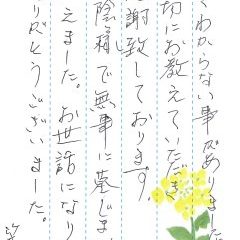 くわからない事がありました
切にお教えていただき
謝致しております。
陰様で無事に墓じま
えました。お世話になり
りがとうございました。